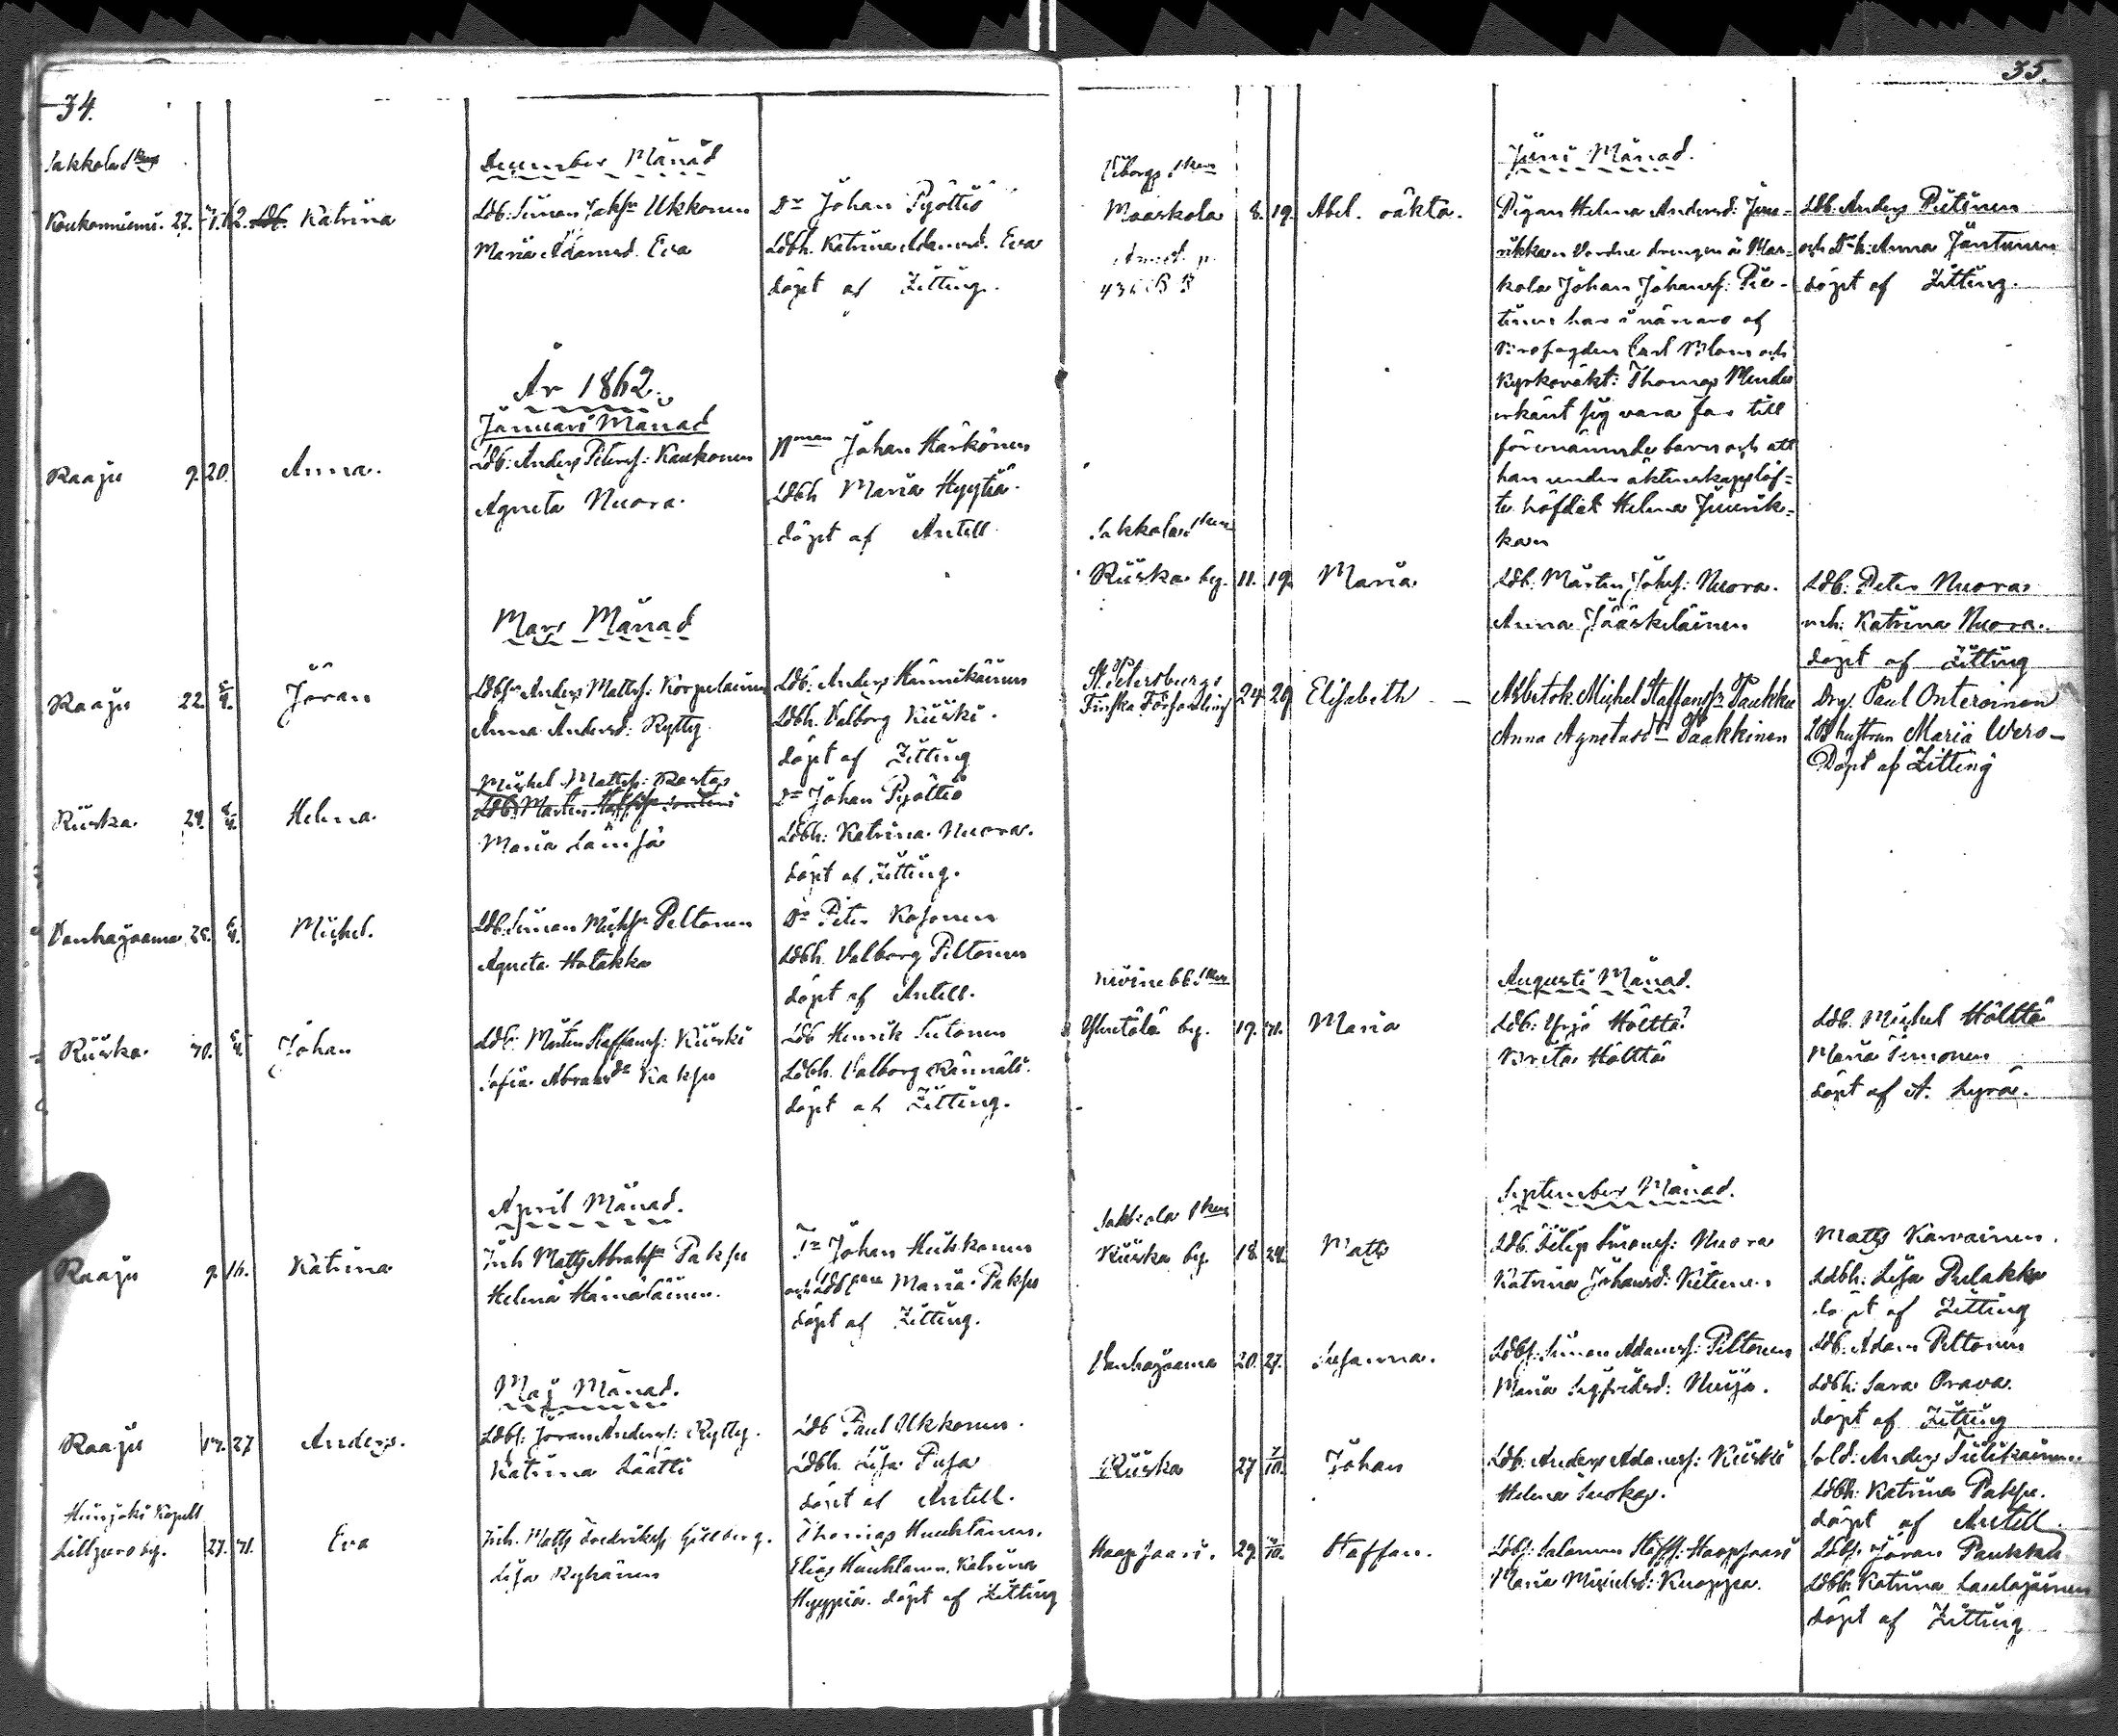 34.
Sakkola
December Månad
Koukunniemi. 27. 1/1. 62. Ldb. Katrina
Ldb. Simon Jaks Ukkonen
Maria Adamsd. Eva
Dr Johan Pyöttiö
Ldbh. Katrina Adamsd. Eva
döpt af Zitting.
År 1862.
Januari Månad
Raaju 9. 20. Anna.
Ldb: Anders Petersf: Kaukonen
Agneta Nuora.
Johan Härkönen
Ldbh Maria Hyytiä.
döpt af Antell
Mars Månad
Raaju 22. Jöran
Anders Mattsf: Korpelainen
Anna Andersd: Rytty
Ldb: Anders Hännikäinen
Ldbh. Valborg Kiiski.
döpt af Zitting
Riiska. 24. Helena.
Michel Mattsf: Rastas
Maria Länsä
Dr Johan Pyöttiö
Ldbh: Katrina Nuora.
döpt af Zitting.
Vanhajaama 25. Michel.
Ldb. Simon Michsr Peltonen
Agneta Hatakka
Dr Peter Kosonen
Ldbh. Valborg Peltonen
döpt af Antell.
Riiska. 30. Johan
Ldb. Mårten Staffansf: Kiiski
Sofia Abrahdr Pakso
Ldb Henrik Sutonen
Ldbh. Valborg Rännäli.
döpt af Zitting.
April Månad.
Raaju 9. 16. Katrina
Inh Matts Abrahsr Pakso
Helena Hämäläinen.
Johan Huhkonen
Maria Pakso
döpt af Zitting.
Maj Månad.
Raaju 27 Anders.
Ldbs. Jöran Andersf: Rytty.
Katrina Säätti
Ldb Paul Ukkonen.
Ldbh. Lisa Pusa
döpt af Antell.
Heinjoki Kapell
27. 31. Eva
Inh. Matts Fredriksf Gillberg.
Lisa Ryhänen
Thomas Huuhtanen.
Elias Huuhtanen. Katrina
Hyyppiä. döpt af Zitting
35.
Juni Månad.
Viborgs
Maaskola 8. 19. Abel. oäkta.
Pigan Helena Andersd: Jun-
nikkan Vordne drengen i Mas-
kola Johan Johansf: Pie-
tinen har i närvaro af
Krofogden Carl Blom och
Kyrkoväkt: Thomas Mendes
erkänt sig vara far till
förenämnde barn och att
han under äktenskapslöf-
te häfdat Helena Junnik-
kan
Ldb. Anders Pietinen
och Drh: Anna Jäntunen
döpt af Zitting.
Sakkola
Riiska by. 11. 19. Maria
Ldb. Mårten Johsf: Nuora.
Anna Jääskeläinen
Ldb: Peter Nuora
och Katrina Nuora.
döpt af Zitting
St. Petersburgs
Finska Församling 24 29 Elisabeth
Arbetsk. Michel Staffanssr Paukku
Anna Agnetasdr Paakkinen
Drg. Paul Onteroinen
hustrun Maria Wers
Döpt af Zitting
Augusti Månad.
Kivineb
by. 19. 31. Maria
Ldb: Yrjö Hölttä?
Brita Hölttä
Ldb. Michel Hölttä
Maria Simonen
döpt af A. Lyra.
September Månad.
Sakkola
Riiska by. 18. 24. Matts
Ldb. Filip Simonsf: Nuora
Katrina Johansd: Kitinen
Matts Karvainen.
Ldbh: Lisa Pulakka
döpt af Zitting
Vanhajaama 20. 27. Susanna.
Ldbs: Simon Adamsf: Peltonen
Maria Sigfridsd: Neuja.
Ldb. Adam Peltonen
Ldbh: Sara Orava.
döpt af Zitting
Riiska 27 Johan
Ldb: Anders Adamsf: Kiiski
Helena Suokas.
Sold. Anders Tiilikainen.
Ldbh: Katrina Pakso.
döpt af Antell.
Haapsaari. 29. Staffan.
Ldbs: Salomon Staffsf: Haapsaari
Maria Michelsd: Kuoppa.
Ldbs: Jöran Paukku
Ldbh: Katrina Laulajainen
döpt af Zitting